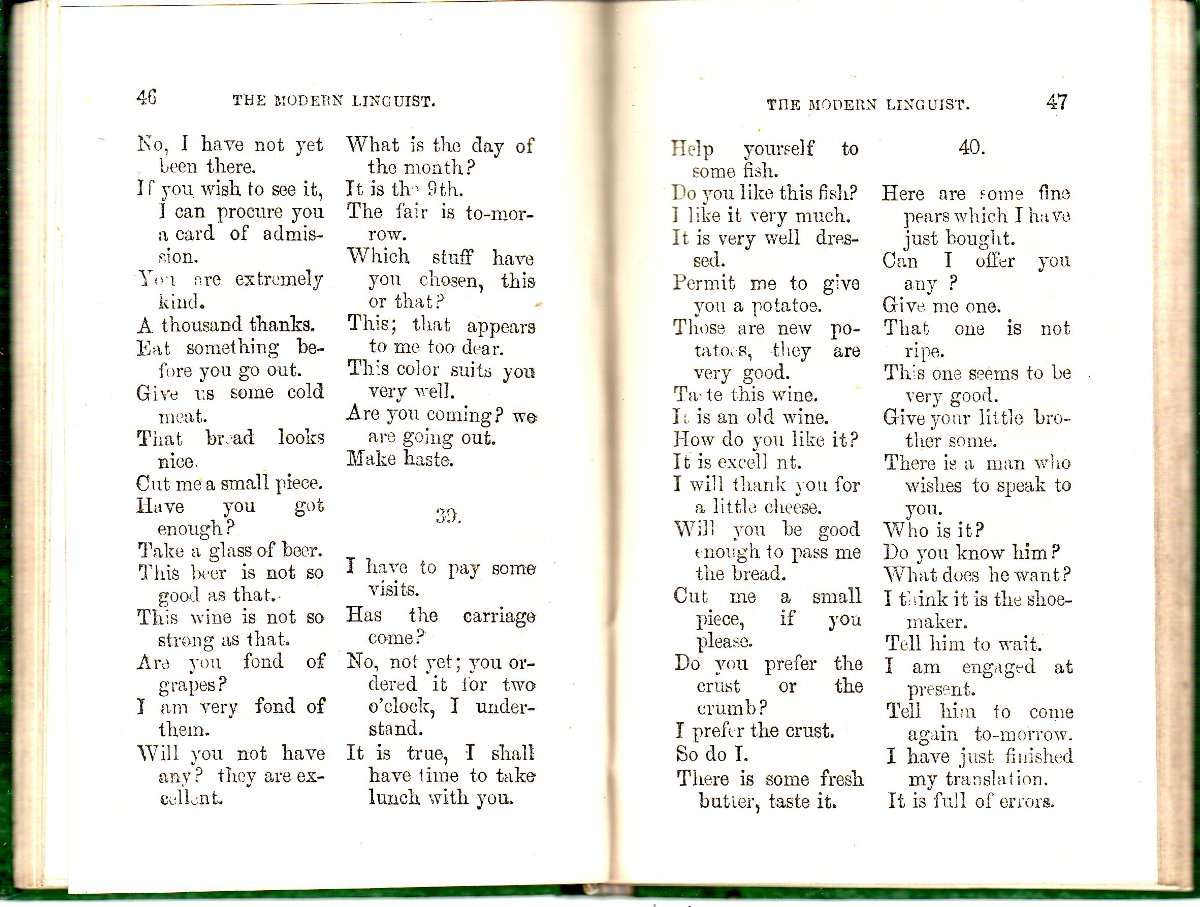 46
THE MODERN LINGUIST.
No, I have not yet
been there.
If you wish to see it,
I can procure you
a card of admis-
sion.
You are extremely
kind.
A thousand thanks.
Eat something be-
fore you go out.
Give us some cold
meat.
That bread looks
nice.
Cut me a small piece.
Have you got
enough?
Take a glass of beer.
This beer is not so
good as that.
This wine is not so
strong as that.
Are you fond of
grapes?
I am very fond of
them.
Will you not have
any? they are ex-
cellent.
What is the day of
the month?
It is the 9th.
The fair is to-mor-
row.
Which stuff have
you chosen, this
or that?
This; that appears
to me too dear.
This color suits you
very well.
Are you coming? we
are going out.
Make haste.
39.
I have to pay some
visits.
Has the carriage
come?
No, not yet; you or-
dered it for two
o'clock, I under-
stand.
It is true, I shall
have time to take
lunch with you.
THE MODERN LINGUIST.
47
Help yourself to
some fish.
Do you like this fish?
I like it very much.
It is very well dres-
sed.
Permit me to give
you a potatoe.
Those are new po-
tatoes, they are
very good.
Taste this wine.
It is an old wine.
How do you like it?
It is excellent.
I will thank you for
a little cheese.
Will you be good
enough to pass me
the bread.
Cut me a small
piece, if you
please.
Do you prefer the
crust or the
crumb?
I prefer the crust.
So do I.
There is some fresh
butter, taste it.
40.
Here are some fine
pears which I have
just bought.
Can I offer you
any ?
Give me one.
That one is not
ripe.
This one seems to be
very good.
Give your little bro-
ther some.
There is a man who
wishes to speak to
you.
Who is it?
Do you know him?
What does he want?
I think it is the shoe-
maker.
Tell him to wait.
I am engaged at
present.
Tell him to come
again to-morrow.
I have just finished
my translation.
It is full of errors.